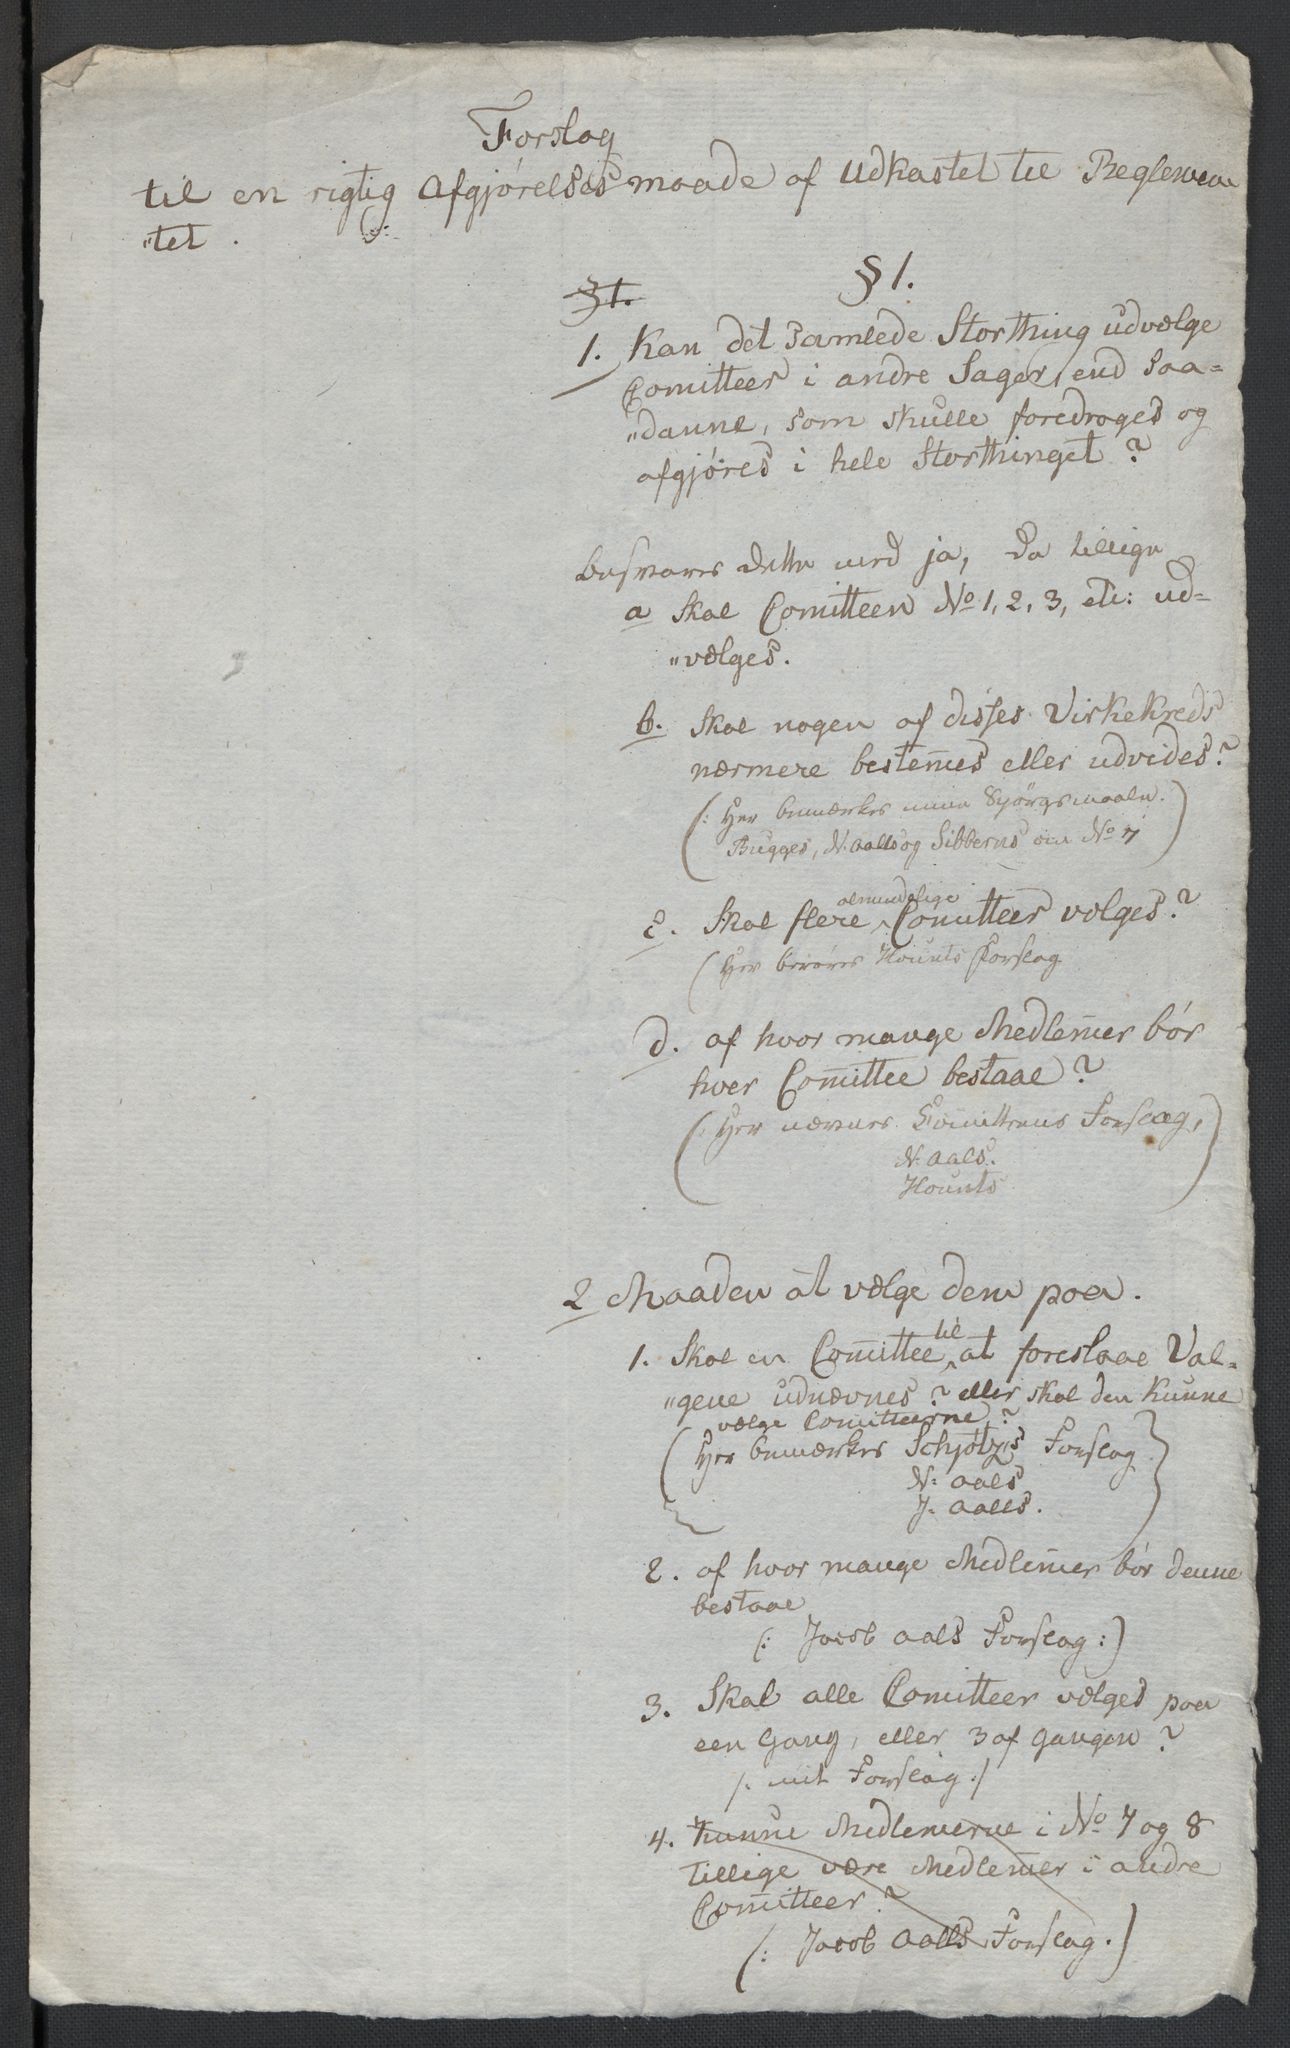 Forslag
til en rigtig Afgjørelses maade af Udkastet til Reglemen
"tet.
§ 1.
§ 1.
1. Kan det samlede Storthing udvælge
Comitteer i andre Sager, end saa=
"danne, som skulle foredrages og
afgjøres i hele Storthinget?
Besvares dette med ja, da tillige
a Skal Comitteen No 1, 2, 3, etc: ud=
"vælges.
b. Skal nogen af disses Virkekreds
nærmere bestem̄es eller udvides?
(: Her bemærkes mine Spörgsmaale.
Bugges, N. Aalls og Sibberns om No 7)
c. Skal flere almindelige Comitteer vælges?
(Her berøres Hounts Forslag
d. af hvor mange Medlem̄er bör
hver Com̄ittee bestaae?
(: Her nævnes Com̄itteens Forslag,)
N. Aals.
Hounts
2 Maaden at vælge dem paa.
1. Skal en Com̄ittee til at foreslaae Val=
"gene udnævnes? eller skal den kunne
vælge Comitteerne?
(Her bemærkes Schjøtzs Forslag)
N: Aals
J. Aalls.
2. af hvor mange Medlem̄er bör denne
bestaae
(: Jacob Aals Forslag :)
3. Skal alle Comitteer vælges paa
een Gang, eller 3 af Gangen?
/: mit Forslag :/
4. Kunne Medlemerne i No 7 og 8
tillige være Medlem̄er i andre
Com̄itteer?
(: Jacob Aalls Forslag.)